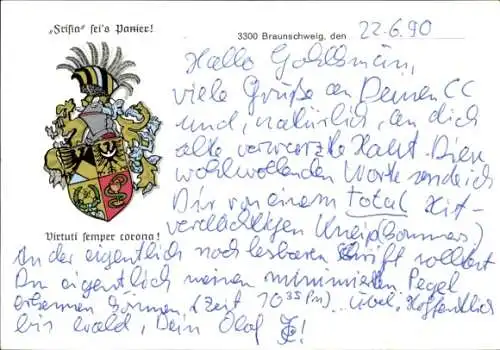 „Frisia“ sei's Panier!
3300 Braunschweig, den 22.6.90
Hallo
viele Grüße an Deinen CC
und, natürlich, an dich
alte verwarzte Haut. Diese
wohlwollenden Worte sende ich
Dir von einem total
verdächtigen Kneip(Commers)
Virtuti semper corona!
An der eigentlich noch lesbaren Schrift solltest
Du eigentlich meinen minimierten Pegel
erkennen können, (Zeit 10 35 pm) ... Hoffentlich
bis bald, Dein Olaf